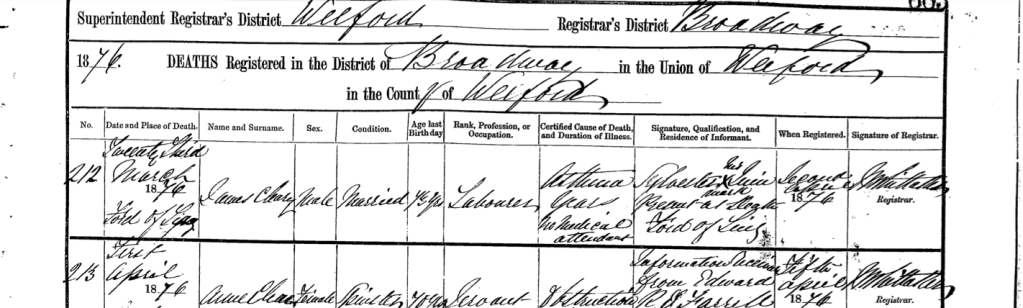 Superintendent Registrar's District Wexford Registrar's District Broadway
1876. DEATHS Registered in the District of Broadway in the Union of Wexford
in the County of Wexford
No. Date and Place of Death. Name and Surname. Sex. Condition. Age last Birthday Rank, Profession, or Occupation. Certified Cause of Death, and Duration of Illness. Signature, Qualification, and Residence of Informant. When Registered. Signature of Registrar.
212 Twenty Third March 1876 Ford of Ling James Cleary Male Married Labourer Asthma Years No Medical attendant Sylvester his mark Present at Death Ford of Ling Second April 1876 Registrar.
213 First April 1876 Anne Female Spinster 70 yrs Servant Obstruction Information Received from Edward Farrell Fifth April 1876 Registrar.